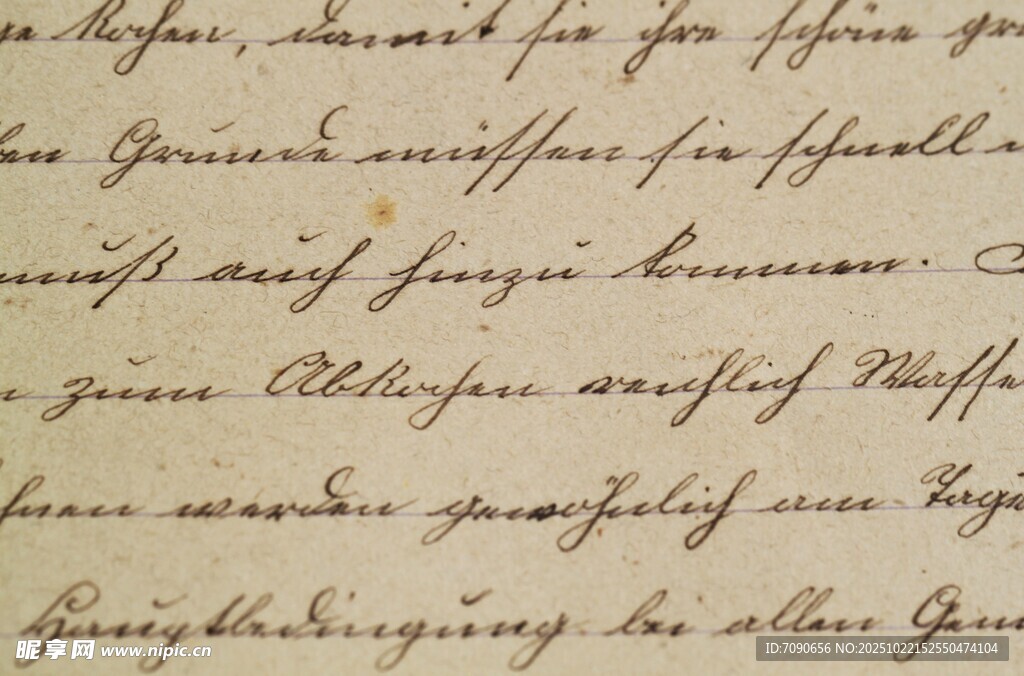 ge kochen, damit sie ihre schöne gr
ben Grunde müssen sie schnell
muß auch hinzu kommen.
zum Abkochen reichlich Wasse
hnen werden gewöhnlich am Tage
Hauptbedingung bei allen Gem
昵享网 www.nipic.cn
ID:7090656 NO:20251022152550474104